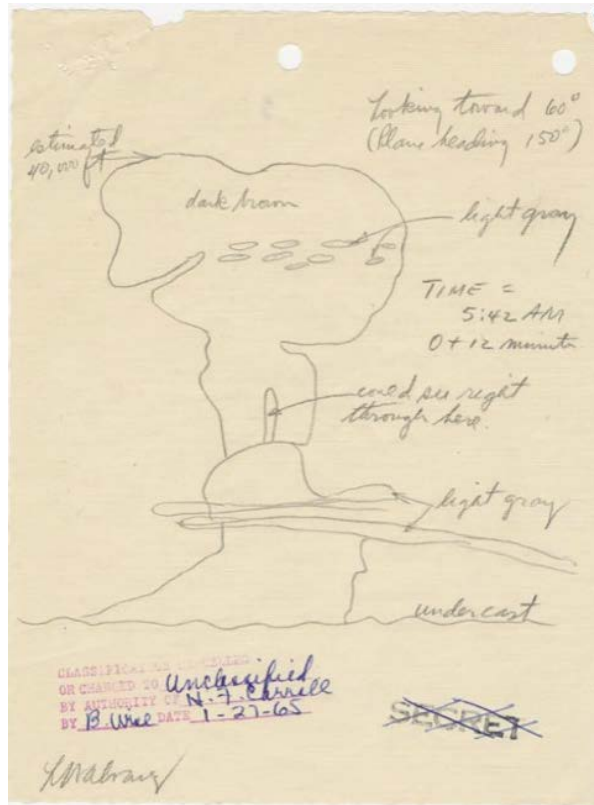 Looking toward 60°
(Plane heading 150°)
estimated
40,000 ft
dark brown
light gray
TIME =
5:42 AM
0 + 12 minute
could see right
through here.
light gray
undercast
CLASSIFICATION CANCELLED
OR CHANGED TO Unclassified
BY AUTHORITY OF H. F. Carroll
BY B. DATE 1-27-65
SECRET